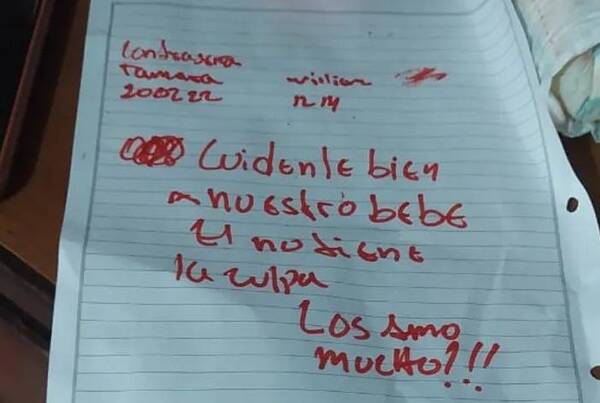 Contraseña
Tamara willian
200222 12 14
Cuidenle bien
a nuestro bebe
El no tiene
la culpa
Los amo
mucho!!!